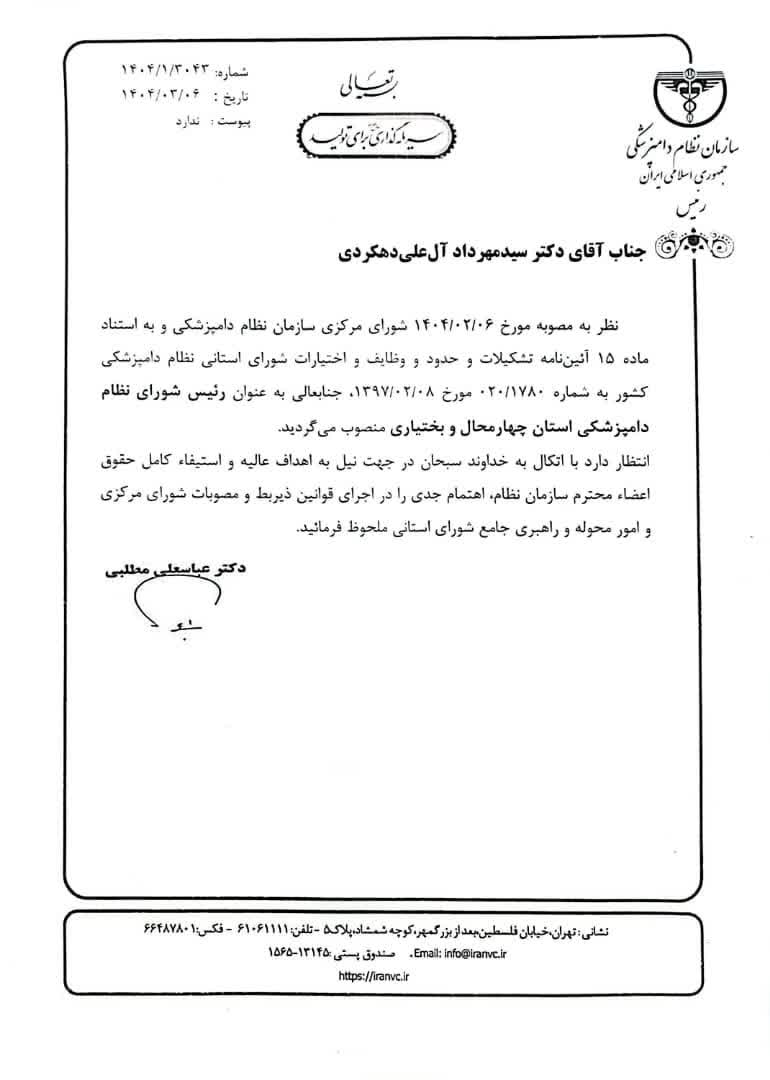 بسمه تعالی
سرمایه گذاری برای تولید
شماره: ۱۴۰۴/۱/۳۰۴۳
تاریخ : ۱۴۰۴/۰۳/۰۶
پیوست : ندارد
سازمان نظام دامپزشکی
جمهوری اسلامی ایران
رئیس
جناب آقای دکتر سیدمهرداد آل‌علی‌دهکردی
نظر به مصوبه مورخ ۱۴۰۴/۰۲/۰۶ شورای مرکزی سازمان نظام دامپزشکی و به استناد
ماده ۱۵ آئین‌نامه تشکیلات و حدود و وظایف و اختیارات شورای استانی نظام دامپزشکی
کشور به شماره ۰۲۰/۱۷۸۰ مورخ ۱۳۹۷/۰۲/۰۸، جنابعالی به عنوان رئیس شورای نظام
دامپزشکی استان چهارمحال و بختیاری منصوب می‌گردید.
انتظار دارد با اتکال به خداوند سبحان در جهت نیل به اهداف عالیه و استیفاء کامل حقوق
اعضاء محترم سازمان نظام، اهتمام جدی را در اجرای قوانین ذیربط و مصوبات شورای مرکزی
و امور محوله و راهبری جامع شورای استانی ملحوظ فرمائید.
دکتر عباسعلی مطلبی
نشانی: تهران،خیابان فلسطین،بعد از بزرگمهر،کوچه شمشاد،پلاک۵ -تلفن:۶۱۰۶۱۱۱۱ - فکس:۶۶۴۸۷۸۰۱
صندوق پستی :۱۳۱۴۵-۱۵۶۵ .Email: info@iranvc.ir
https://iranvc.ir